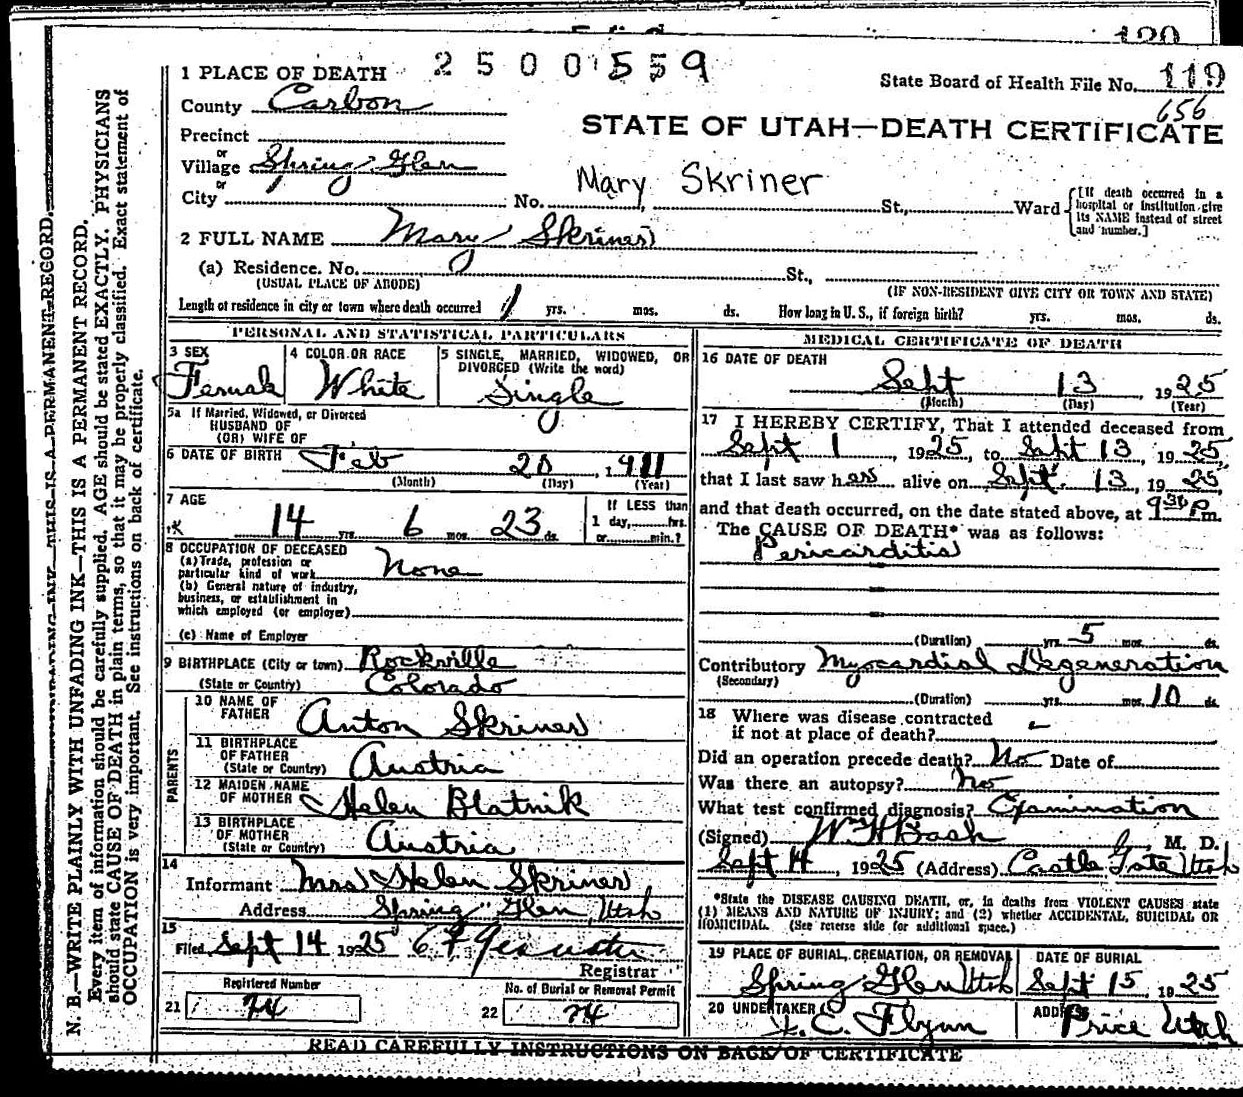 120
2500559
1 PLACE OF DEATH
State Board of Health File No. 119
656
County Carbon
STATE OF UTAH—DEATH CERTIFICATE
Precinct
or
Village Spring Glen
or
Mary Skriner
City No. St., Ward
[If death occurred in a hospital or institution give its NAME instead of street and number.]
2 FULL NAME Mary Skriner
(a) Residence. No. St.,
(USUAL PLACE OF ABODE) (IF NON-RESIDENT GIVE CITY OR TOWN AND STATE)
Length of residence in city or town where death occurred 1 yrs. mos. ds. How long in U. S., if foreign birth? yrs. mos. ds.
PERSONAL AND STATISTICAL PARTICULARS
3 SEX Female
4 COLOR OR RACE White
5 SINGLE, MARRIED, WIDOWED, OR
DIVORCED (Write the word)
Single
5a If Married, Widowed, or Divorced
HUSBAND OF
(OR) WIFE OF
6 DATE OF BIRTH Feb 20 1911
(Month) (Day) (Year)
7 AGE
14 yrs. 6 mos. 23 ds.
If LESS than
1 day, hrs.
or min.?
8 OCCUPATION OF DECEASED
(a) Trade, profession or
particular kind of work None
(b) General nature of industry,
business, or establishment in
which employed (or employer)
(c) Name of Employer
9 BIRTHPLACE (City or town) Rockville
(State or Country) Colorado
PARENTS
10 NAME OF
FATHER Anton Skriner
11 BIRTHPLACE
OF FATHER
(State or Country) Austria
12 MAIDEN NAME
OF MOTHER Helen Blatnik
13 BIRTHPLACE
OF MOTHER
(State or Country) Austria
14
Informant Mrs Helen Skriner
Address Spring Glen, Utah
15
Filed Sept 14 1925
Registrar
Registered Number
21 74
No. of Burial or Removal Permit
22 74
MEDICAL CERTIFICATE OF DEATH
16 DATE OF DEATH
Sept 13, 1925
(Month) (Day) (Year)
17 I HEREBY CERTIFY, That I attended deceased from
Sept 1, 1925, to Sept 13, 1925
that I last saw her alive on Sept. 13, 1925,
and that death occurred, on the date stated above, at 9 30 Pm.
The CAUSE OF DEATH* was as follows:
Pericarditis
(Duration) yrs. 5 mos. ds.
Contributory Myocardial Degeneration
(Secondary)
(Duration) yrs. mos. 10 ds.
18 Where was disease contracted
if not at place of death? -
Did an operation precede death? No Date of
Was there an autopsy? No
What test confirmed diagnosis? Examination
(Signed) W H Bash, M. D.
Sept 14, 1925 (Address) Castle Gate Utah
*State the DISEASE CAUSING DEATH, or, in deaths from VIOLENT CAUSES state
(1) MEANS AND NATURE OF INJURY; and (2) whether ACCIDENTAL, SUICIDAL OR
HOMICIDAL. (See reverse side for additional space.)
19 PLACE OF BURIAL, CREMATION, OR REMOVAL
Spring Glen Utah
DATE OF BURIAL
Sept 15 1925
20 UNDERTAKER
C. Flynn
ADDRESS
Price Utah
READ CAREFULLY INSTRUCTIONS ON BACK OF CERTIFICATE
N. B.—WRITE PLAINLY WITH UNFADING INK—THIS IS A PERMANENT RECORD.
Every item of information should be carefully supplied. AGE should be stated EXACTLY. PHYSICIANS
should state CAUSE OF DEATH in plain terms, so that it may be properly classified. Exact statement of
OCCUPATION is very important. See instructions on back of certificate.